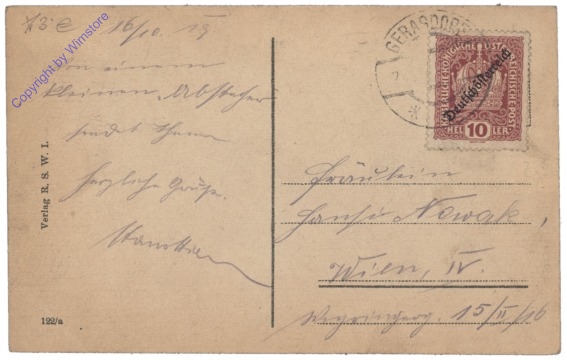 Copyright by Wimstore
16/10. 19
Von einem
kleinen Abstecher
sendet Ihnen
herzliche Grüße.
Verlag R. S. W. I.
122/a
GERASDORF
KAISERLICHE KÖNIGLICHE ÖSTERREICHISCHE POST
Deutschösterreich
HEL 10 LER
Fräulein
Hansi Nowak,
Wien, IV.
15/II/16